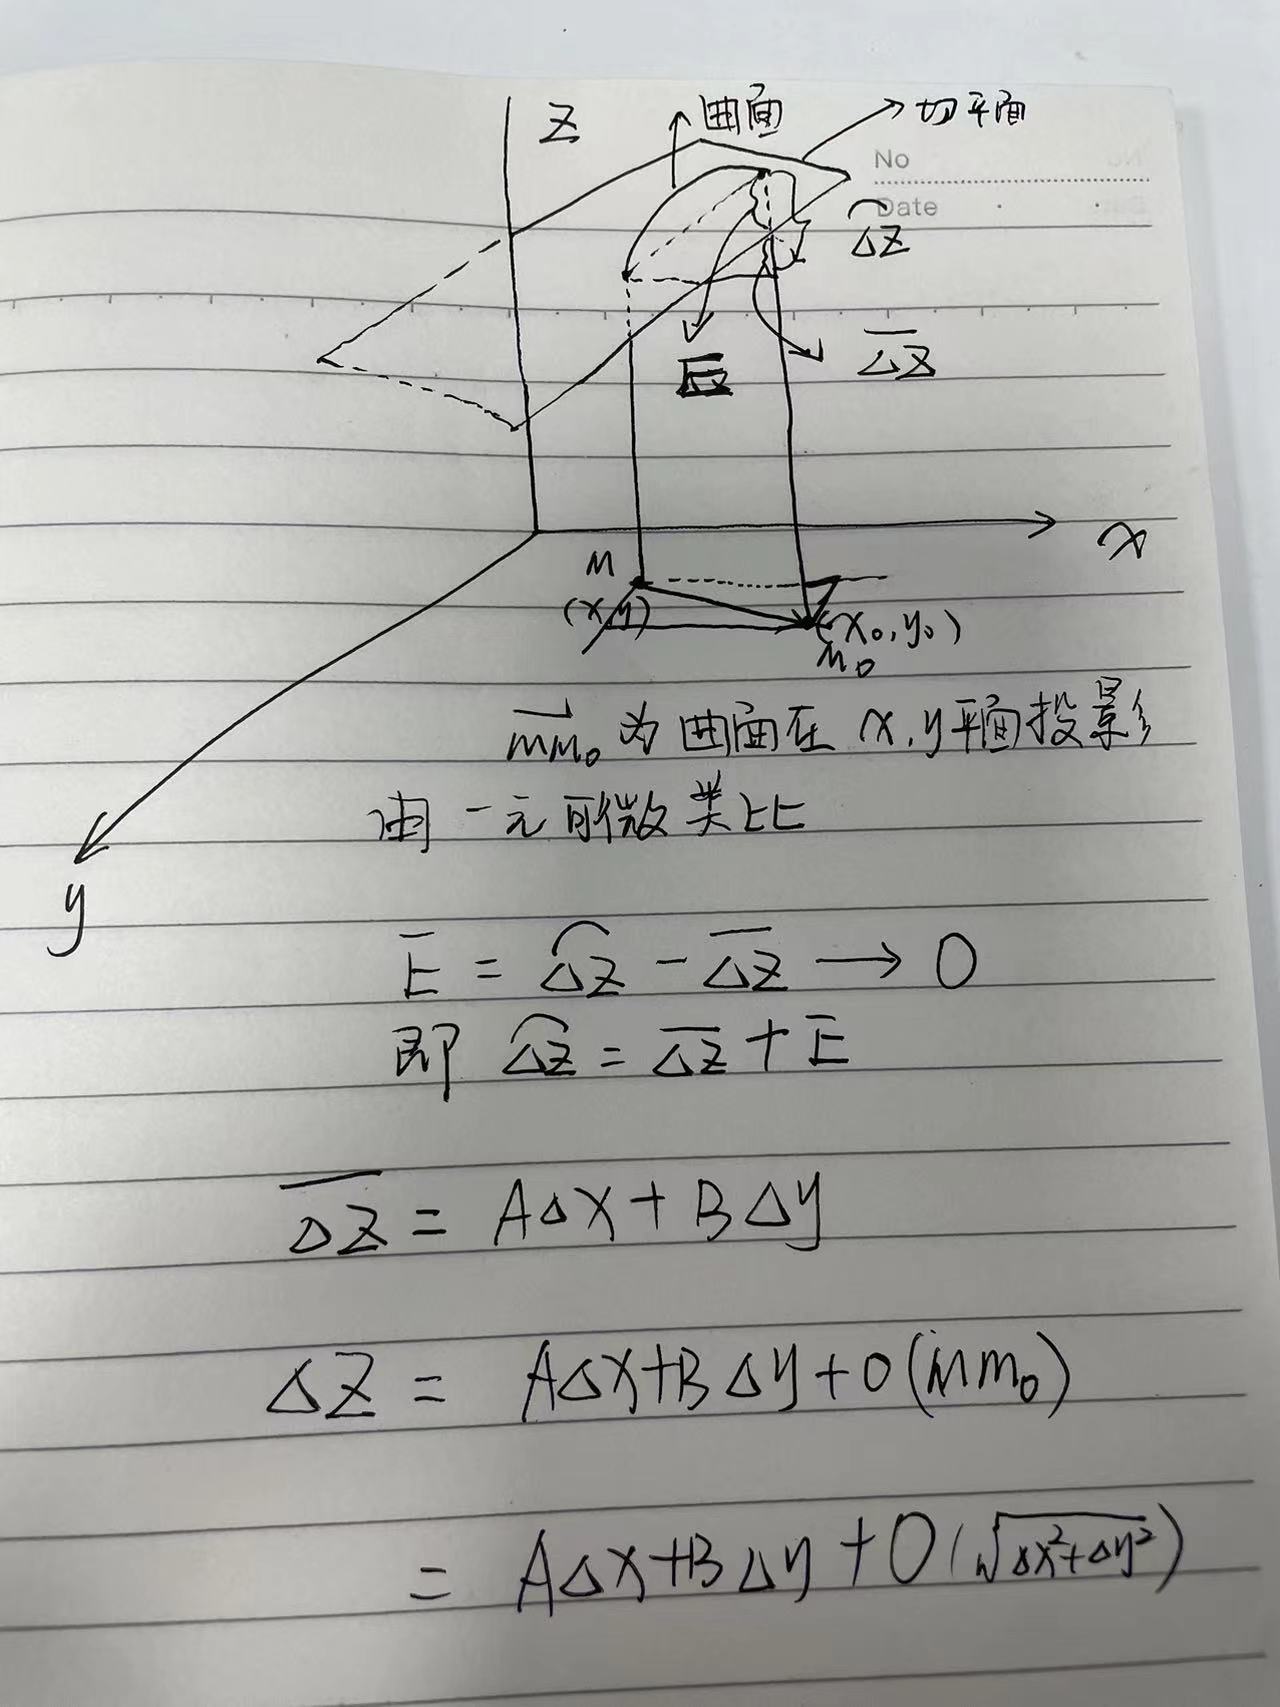 Z
曲面
切平面
No
Date
ΔZ
E
ΔZ
x
M
(x,y)
(x₀,y₀)
M₀
y
MM₀ 为曲面在 x,y平面投影
由一元可微类比
E = ΔZ - ΔZ → 0
即 ΔZ = ΔZ + E
ΔZ = AΔx + BΔy
ΔZ = AΔx+BΔy+o(MM₀)
= AΔx+BΔy+o(√Δx²+Δy²)